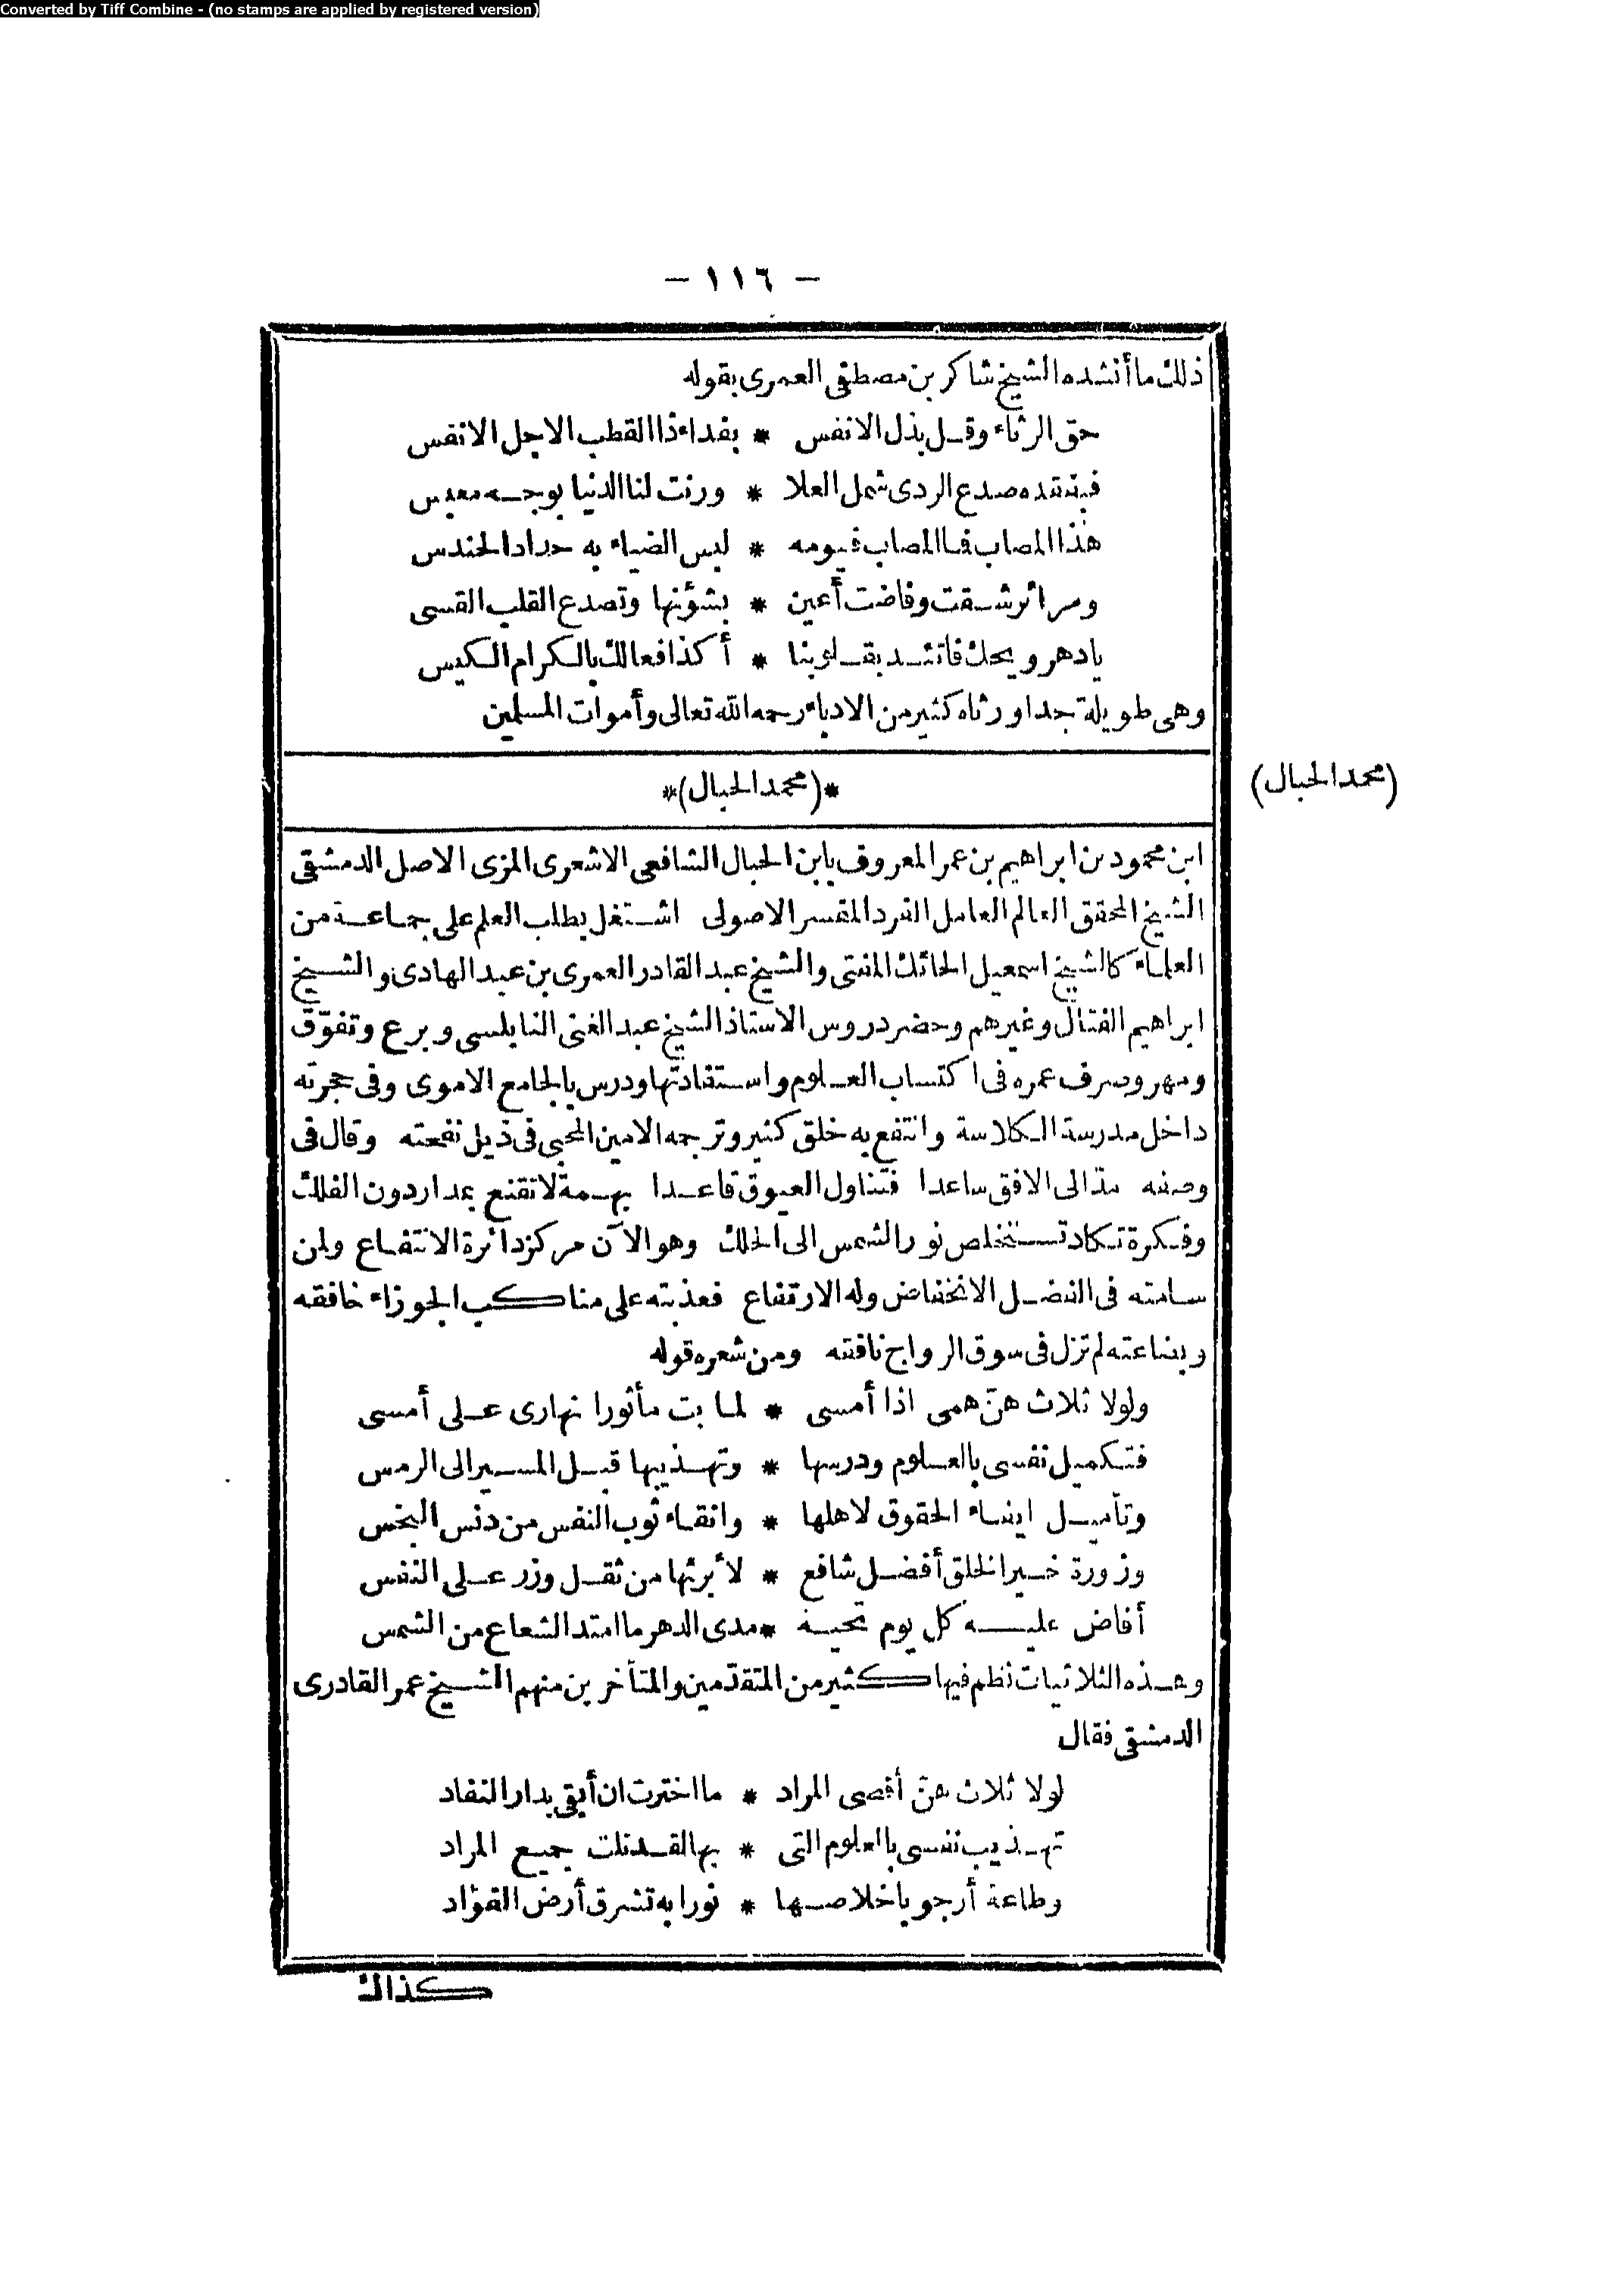 Converted by Tiff Combine - (no stamps are applied by registered version)
— ١١٦ —
ذلك ما أنشده الشيخ شاكر بن مصطفى العمرى بقوله
حق الرثاء وقل بذل الانفس * بفداء ذا القطب الاجل الانفس
فبفقده صدع الردى شمل العلا * ورنت لنا الدنيا بوجه معبس
هذا المصاب فما المصاب فيومه * لبس الضياء به حداد الحندس
ومرائر شقت وفاضت أعين * بشؤنها وتصدع القلب القسى
يا دهر ويحك فاتئد بقلوبنا * أكذا فعالك بالكرام الكيس
وهى طويلة جدا ورثاه كثير من الادباء رحمه الله تعالى وأموات المسلمين
*(محمد الحبال)*
(محمد الحبال)
ابن محمود بن ابراهيم بن عمر المعروف بابن الحبال الشافعى الاشعرى المزى الاصل الدمشقى
الشيخ المحقق العالم العامل الفرد المفسر الاصولى اشتغل بطلب العلم على جماعة من
العلماء كالشيخ اسمعيل الحائك المفتى والشيخ عبد القادر العمرى بن عبد الهادى والشيخ
ابراهيم الفتال وغيرهم وحضر دروس الاستاذ الشيخ عبد الغنى النابلسى وبرع وتفوّق
ومهر وصرف عمره فى اكتساب العلوم واستفادتها ودرس بالجامع الاموى وفى حجرته
داخل مدرسة الكلاسة وانتفع به خلق كثير وترجمه الامين المحبى فى ذيل نفحته وقال فى
وصفه مدّ الى الافق ساعدا فتناول العيوق قاعدا بهمة لا تقنع بمدار دون الفلك
وفكرة تكاد تستخلص نور الشمس الى الحلك وهو الآن مركز دائرة الانتفاع ولمن
سامته فى الفضل الانخفاض وله الارتفاع فعذبته على مناكب الجوزاء خافقه
وبضاعته لم تزل فى سوق الرواج نافقه ومن شعره قوله
ولولا ثلاث هنّ همى اذا أمسى * لما بت مأثورا نهارى على أمسى
فتكميل نفسى بالعلوم ودرسها * وتهذيبها قبل المسير الى الرمس
وتأميل ايفاء الحقوق لاهلها * وانقاء ثوب النفس من دنس البخس
وزورة خير الخلق أفضل شافع * لأبرئها من ثقل وزر على النفس
أفاض عليه كل يوم تحية * مدى الدهر ما امتد الشعاع من الشمس
وهذه الثلاثيات نظم فيها كثير من المتقدّمين والمتأخرين منهم الشيخ عمر القادرى
الدمشقى فقال
لولا ثلاث هنّ أقصى المراد * ما اخترت ان أبقى بدار النفاد
تهذيب نفسى بالعلوم التى * بها لقد نلت جميع المراد
وطاعة أرجو باخلاصها * نورا به تشرق أرض الفؤاد
كذاك